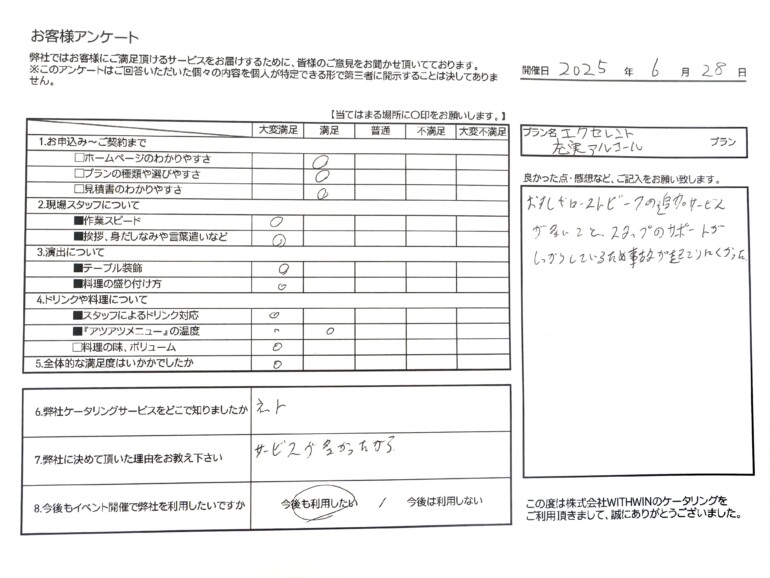 お客様アンケート
弊社ではお客様にご満足頂けるサービスをお届けするために、皆様のご意見をお聞かせ頂いております。
※このアンケートはご回答いただいた個々の内容を個人が特定できる形で第三者に開示することは決してありま
せん。
開催日 2025 年 6 月 28 日
【当てはまる場所に〇印をお願いします。】
大変満足 満足 普通 不満足 大変不満足
1.お申込み～ご契約まで
□ホームページのわかりやすさ ○
□プランの種類や選びやすさ ○
□見積書のわかりやすさ ○
2.現場スタッフについて
■作業スピード ○
■挨拶、身だしなみや言葉遣いなど ○
3.演出について
■テーブル装飾 ○
■料理の盛り付け方 ○
4.ドリンクや料理について
■スタッフによるドリンク対応 ○
■『アツアツメニュー』の温度 ○
□料理の味、ボリューム ○
5.全体的な満足度はいかかでしたか ○
6.弊社ケータリングサービスをどこで知りましたか ネット
7.弊社に決めて頂いた理由をお教え下さい サービスが多かったから
8.今後もイベント開催で弊社を利用したいですか 今後も利用したい / 今後は利用しない
プラン名 エクセレント
充実アルコール プラン
良かった点・感想など、ご記入をお願い致します。
おすしやローストビーフの追加サービス
が多いことと、スタッフのサポートが
しっかりしているため事故が起こりにくかった
この度は株式会社WITHWINのケータリングを
ご利用頂きまして、誠にありがとうございました。